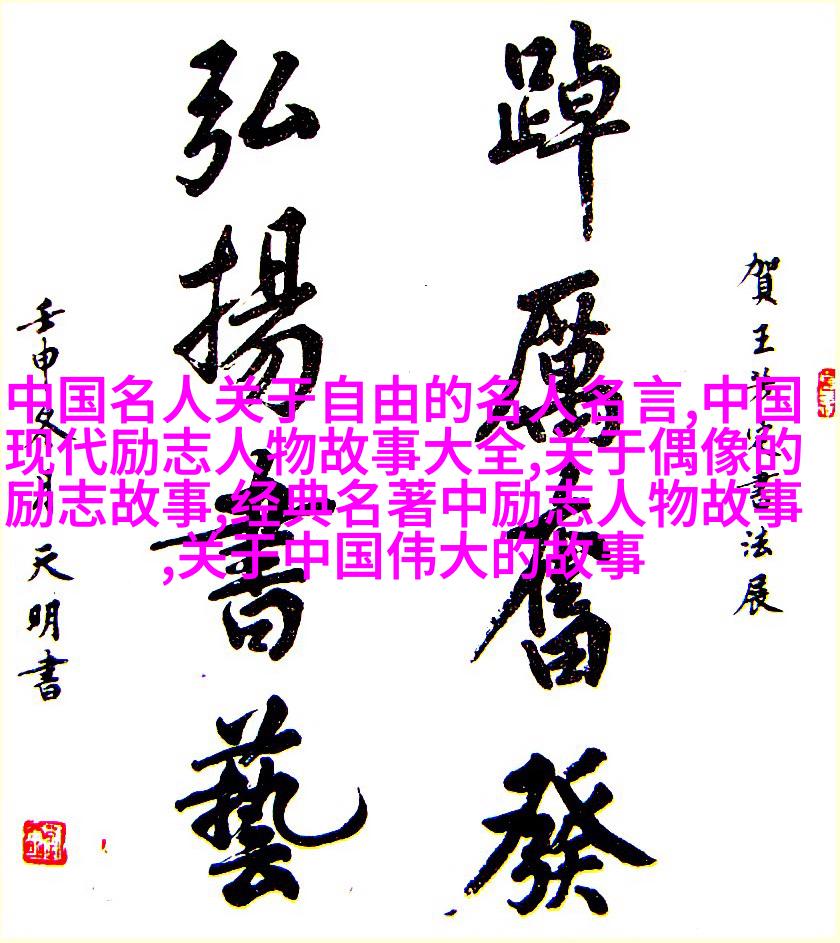 賀王芳
書法展
踔厲奮發
弘揚書藝
壬申冬月天明書
中国名人关于自由的名人名言,中国
现代励志人物故事大全,关于偶像的
励志故事,经典名著中励志人物故事
,关于中国伟大的故事